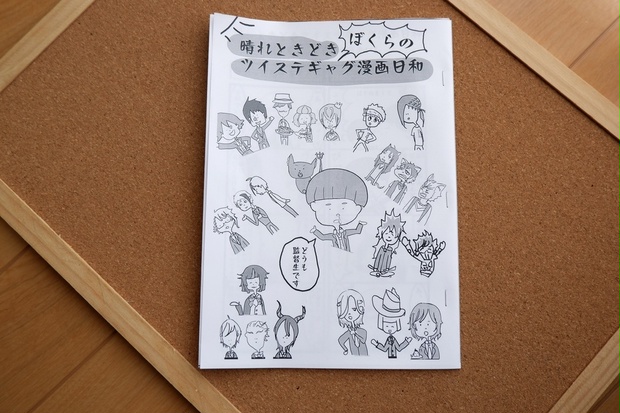 晴れときどき ぼくらの
ツイステギャグ漫画日和
どうも
監督生です